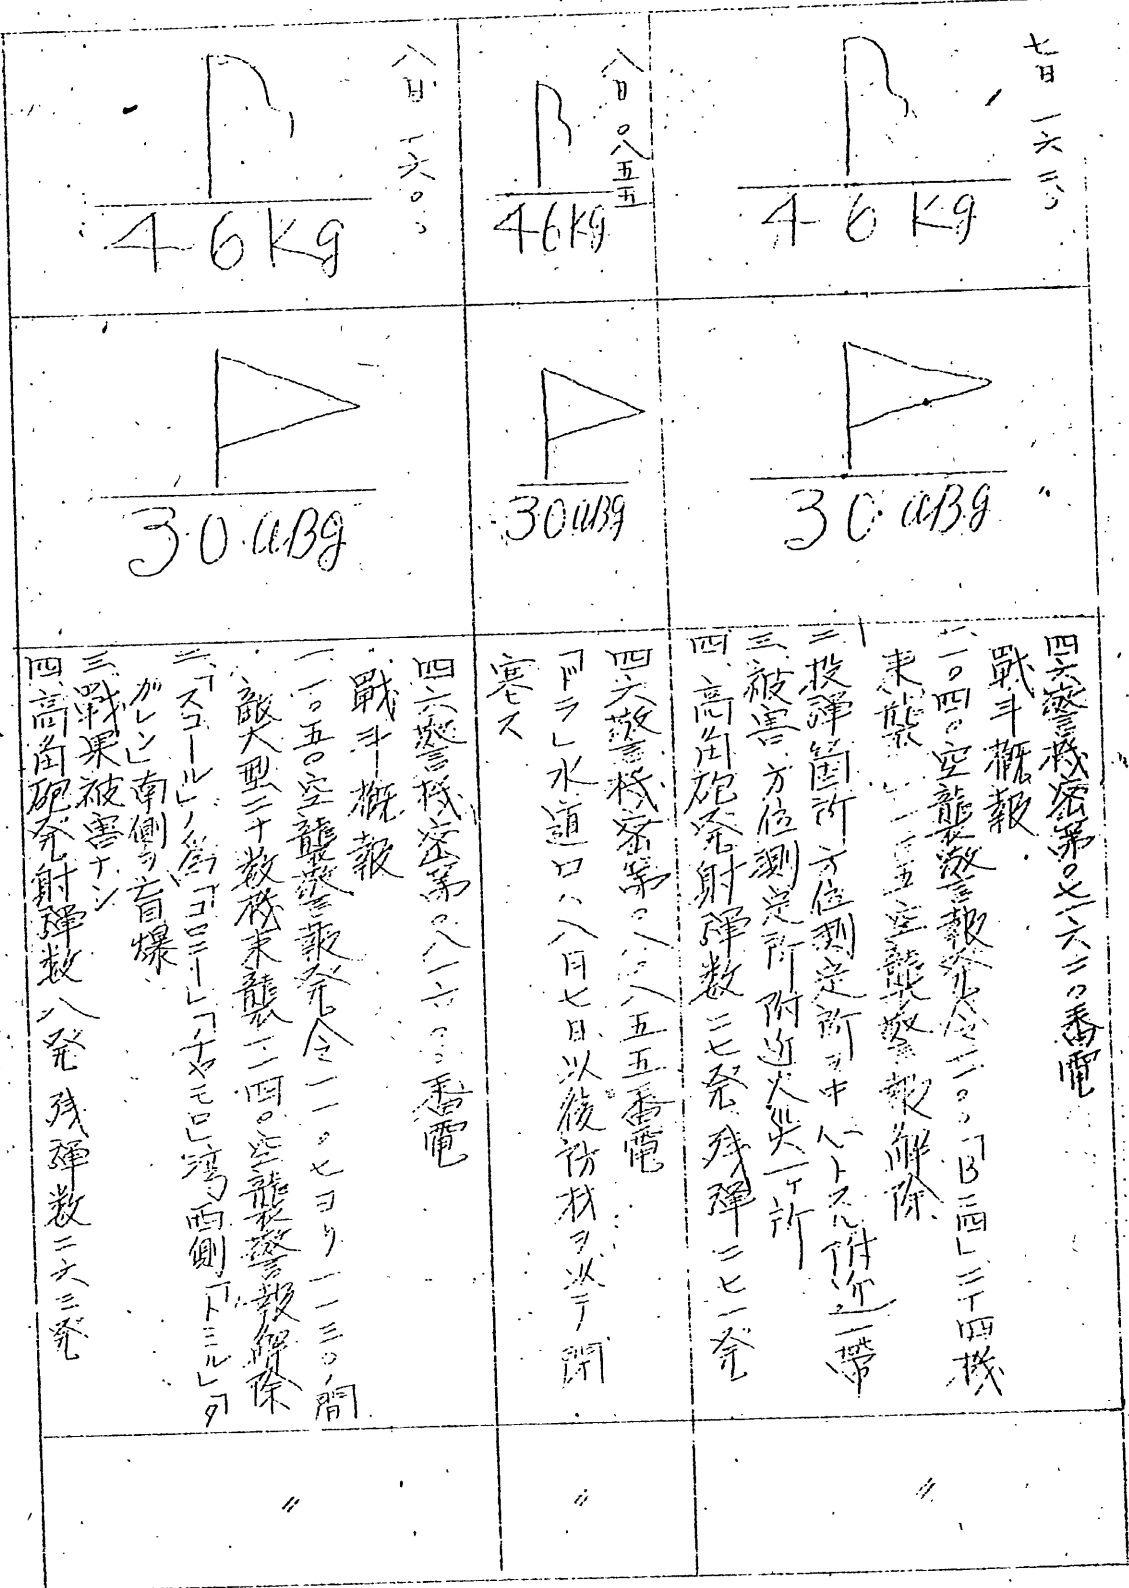 七日 一六二〇
46Kg
30uBg
四六警機密第〇七一六二〇番電
戰斗概報
一、一〇四〇空襲警報発令一一〇〇「B二四」二十四機
来襲 一一一五空襲警報解除
二、投彈箇所 方位測定所ヲ中心トスル附近一帶
三、被害 方位測定所附近火災一ケ所
四、高角砲発射彈数 二七発 残彈 二七一発
〃
八日 〇八五五
46Kg
30uBg
四六警機密第〇八〇八五五番電
「ドラ」水道口ハ八月七日以後防材ヲ以テ閉
塞ス
〃
八日 一六〇〇
46Kg
30uBg
四六警機密第〇八一六〇〇番電
戰斗概報
一、一〇五〇空襲警報発令一一〇七ヨリ一一三〇ノ間
敵大型二十数機来襲一二四〇空襲警報解除
二、「スコール」ノ為「コロニー」「チヤモロ」湾西側「トミル」「タ
ガレン」南側ヲ盲爆
三、戰果被害ナシ
四、高角砲発射彈数八発 残彈数二六三発
〃